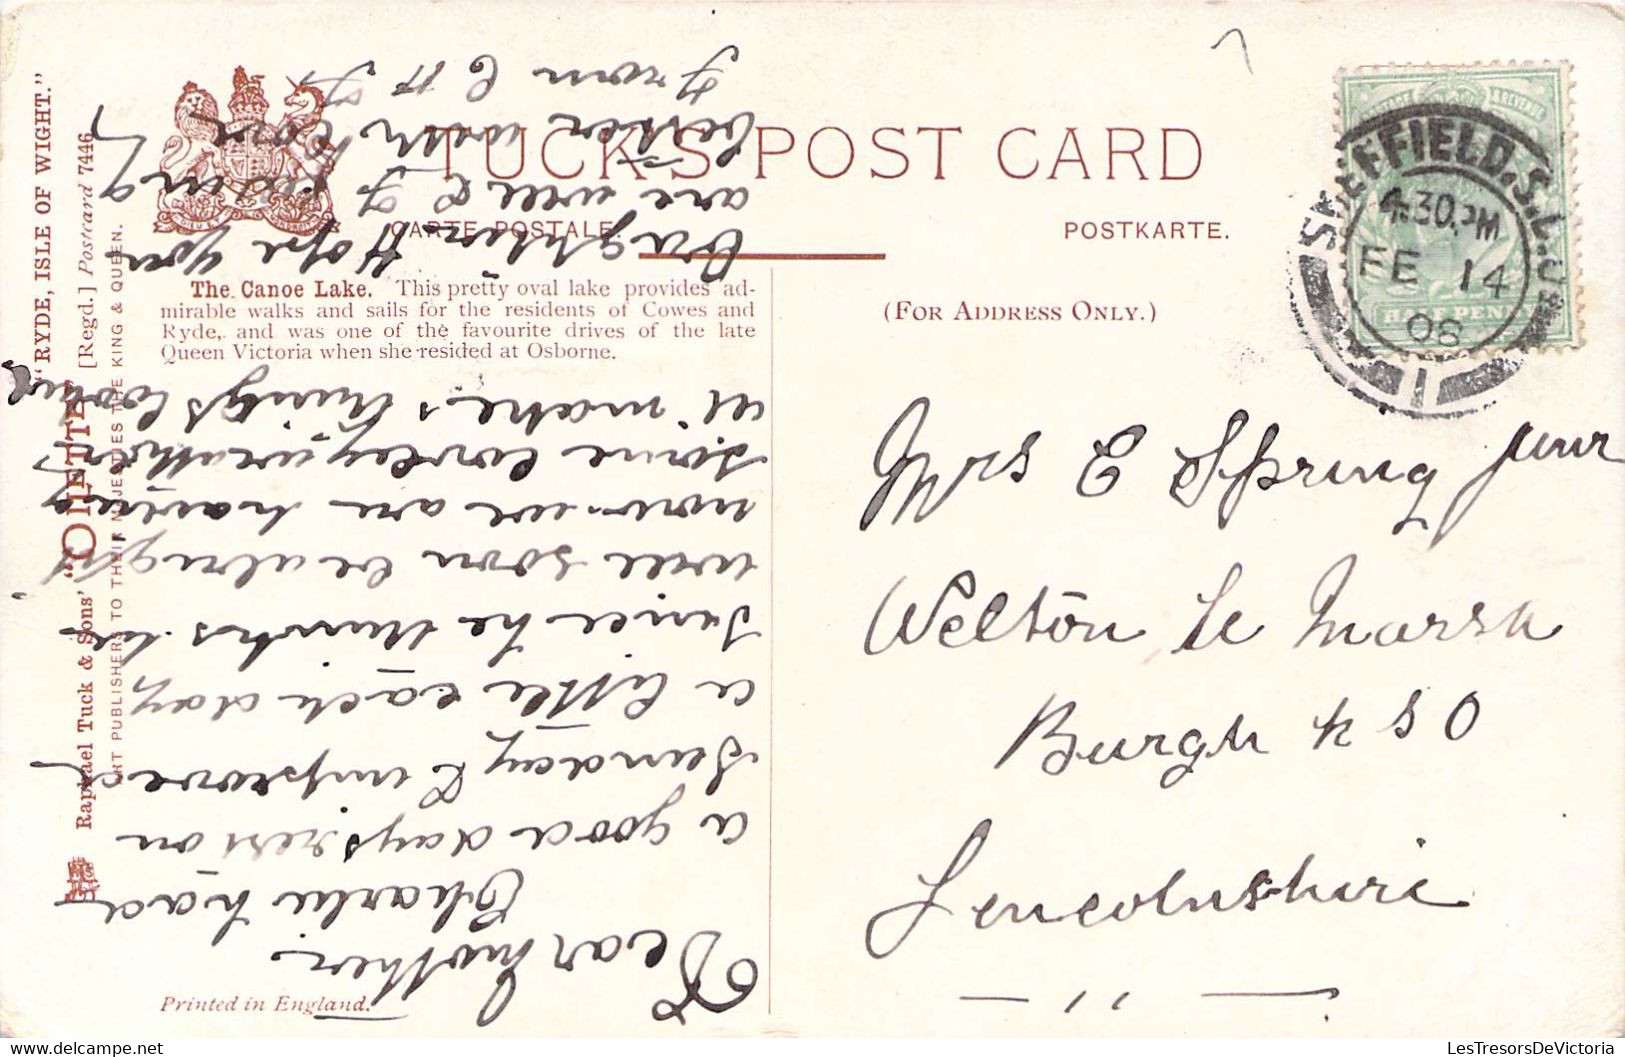 TUCK'S POST CARD
CARTE POSTALE.
POSTKARTE.
(FOR ADDRESS ONLY.)
"RYDE, ISLE OF WIGHT."
Raphael Tuck & Sons' "OILETTE" [Regd.] Postcard 7446
ART PUBLISHERS TO THEIR MAJESTIES THE KING & QUEEN.
The Canoe Lake. This pretty oval lake provides ad-
mirable walks and sails for the residents of Cowes and
Ryde, and was one of the favourite drives of the late
Queen Victoria when she resided at Osborne.
Printed in England.
POSTAGE & REVENUE
HALF PENNY
SHEFFIELD.S.L.
4.30.PM
FE 14
08
1
Mrs E Spring junr
Welton le Marsh
Burgh R S O
Lincolnshire
Dear Mother
Charlie had
a good days rest on
Sunday & improved
a little each day
since he thinks he
will soon be alright
now. we are having
some lovley weather
it makes things look
Hope you
are well &
better with
From C H S
LesTresorsDeVictoria.com